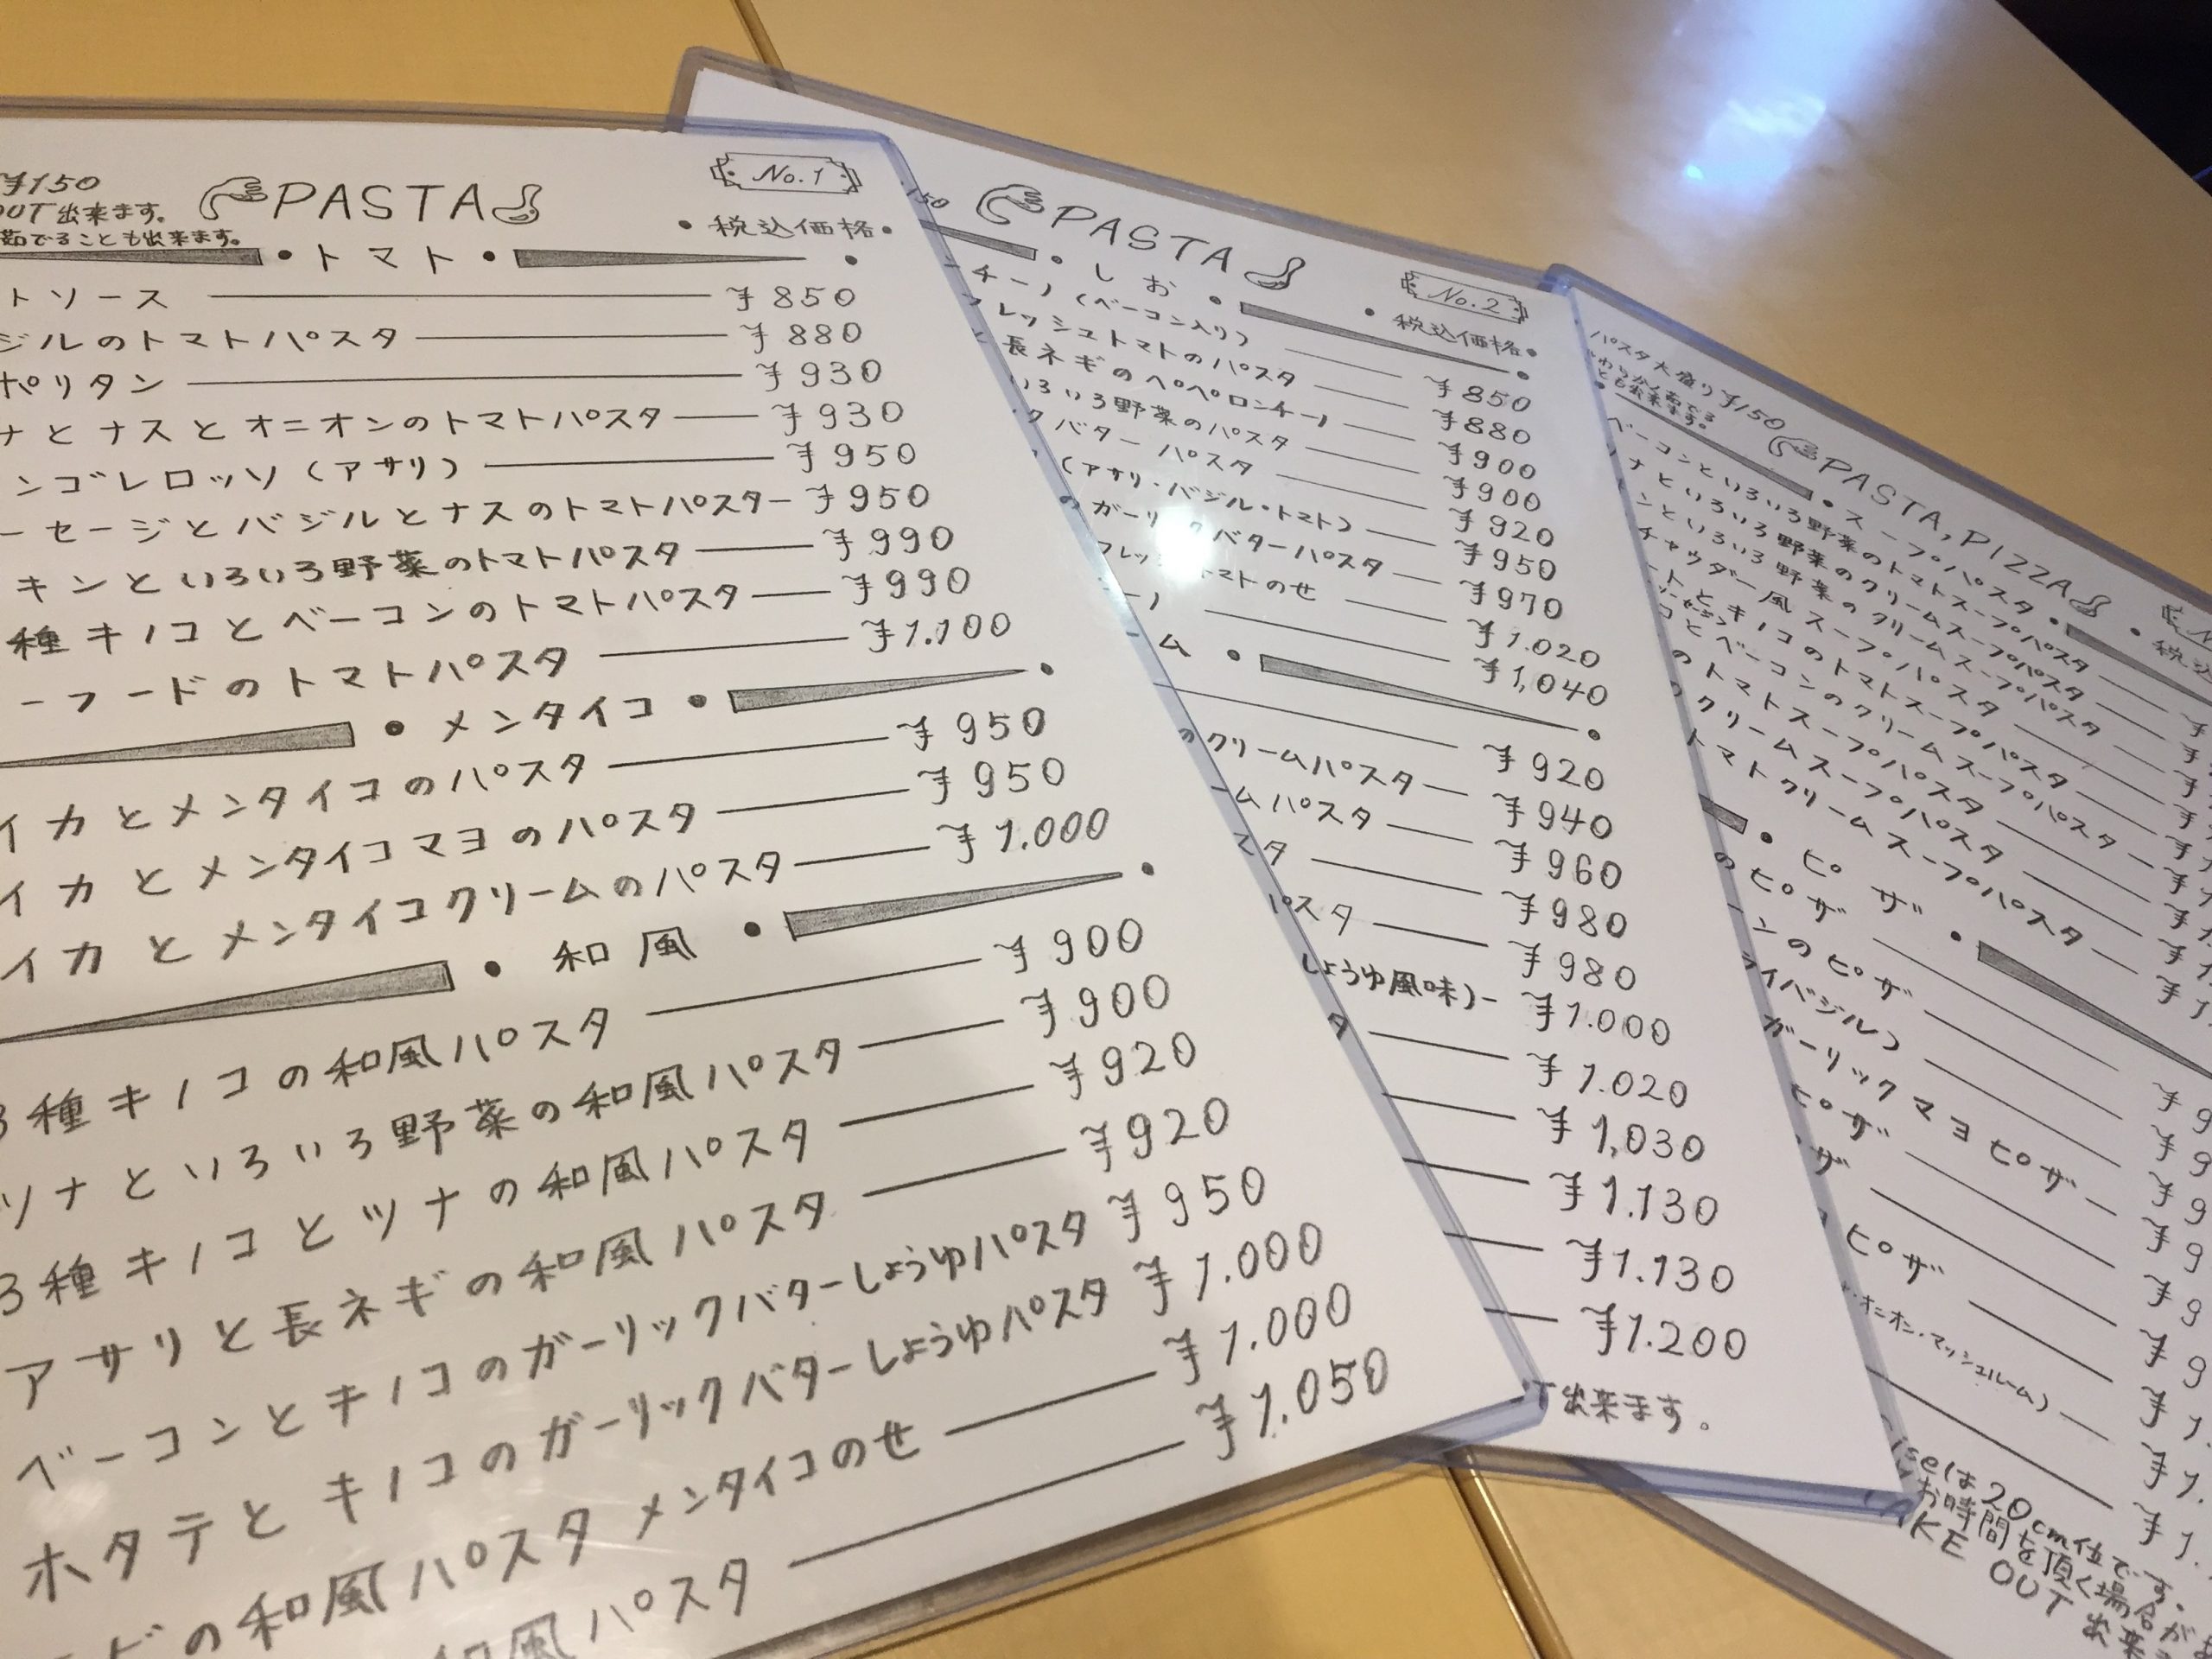 ¥150
OUT出来ます。
茹でることも出来ます。
PASTA
No.1
・税込価格・
・トマト・
トソース ¥850
ジルのトマトパスタ ¥880
ポリタン ¥930
ナとナスとオニオンのトマトパスタ ¥930
ンゴレロッソ(アサリ) ¥950
ーセージとバジルとナスのトマトパスタ ¥950
キンといろいろ野菜のトマトパスタ ¥990
種キノコとベーコンのトマトパスタ ¥990
ーフードのトマトパスタ ¥1.100
・メンタイコ・
イカとメンタイコのパスタ ¥950
イカとメンタイコマヨのパスタ ¥950
イカとメンタイコクリームのパスタ ¥1.000
・和風・
3種キノコの和風パスタ ¥900
ツナといろいろ野菜の和風パスタ ¥900
3種キノコとツナの和風パスタ ¥920
アサリと長ネギの和風パスタ ¥920
ベーコンとキノコのガーリックバターしょうゆパスタ ¥950
ホタテとキノコのガーリックバターしょうゆパスタ ¥1.000
ドの和風パスタ メンタイコのせ ¥1.000
和風パスタ ¥1.050
150
PASTA
No.2
・税込価格・
・しお・
ーチーノ(ベーコン入り) ¥850
レッシュトマトのパスタ ¥880
と長ネギのペペロンチーノ ¥900
いろいろ野菜のパスタ ¥900
クバターパスタ ¥920
(アサリ・バジル・トマト) ¥950
のガーリックバターパスタ ¥970
フレッシュトマトのせ ¥1.020
ーノ ¥1,040
ーム・
¥920
のクリームパスタ ¥940
ームパスタ ¥960
スタ ¥980
パスタ ¥980
しょうゆ風味) ¥1.000
タ ¥1.020
¥1,030
¥1.130
¥1.130
¥1.200
T出来ます。
パスタ大盛り¥150
やわらかく茹でる
とも出来ます。
PASTA, PIZZA
・税込
・スープパスタ・
ベーコンといろいろ野菜のトマトスープパスタ
ナといろいろ野菜のクリームスープパスタ
ンといろいろ野菜のクリームスープパスタ
チャウダー風スープパスタ
トとキノコのトマトスープパスタ
コとベーコンのクリームスープパスタ
のトマトスープパスタ
のクリームスープパスタ
トマトクリームスープパスタ
・ピザ・
のピザ ¥9
ンのピザ ¥9
イバジル) ¥9
ガーリックマヨピザ ¥9
ピザ ¥9
ザ ¥9
ピザ ¥1.
・オニオン・マッシュルーム) ¥1.
¥1.
iseは20cm位です。
お時間を頂く場合が
TAKE OUT 出来